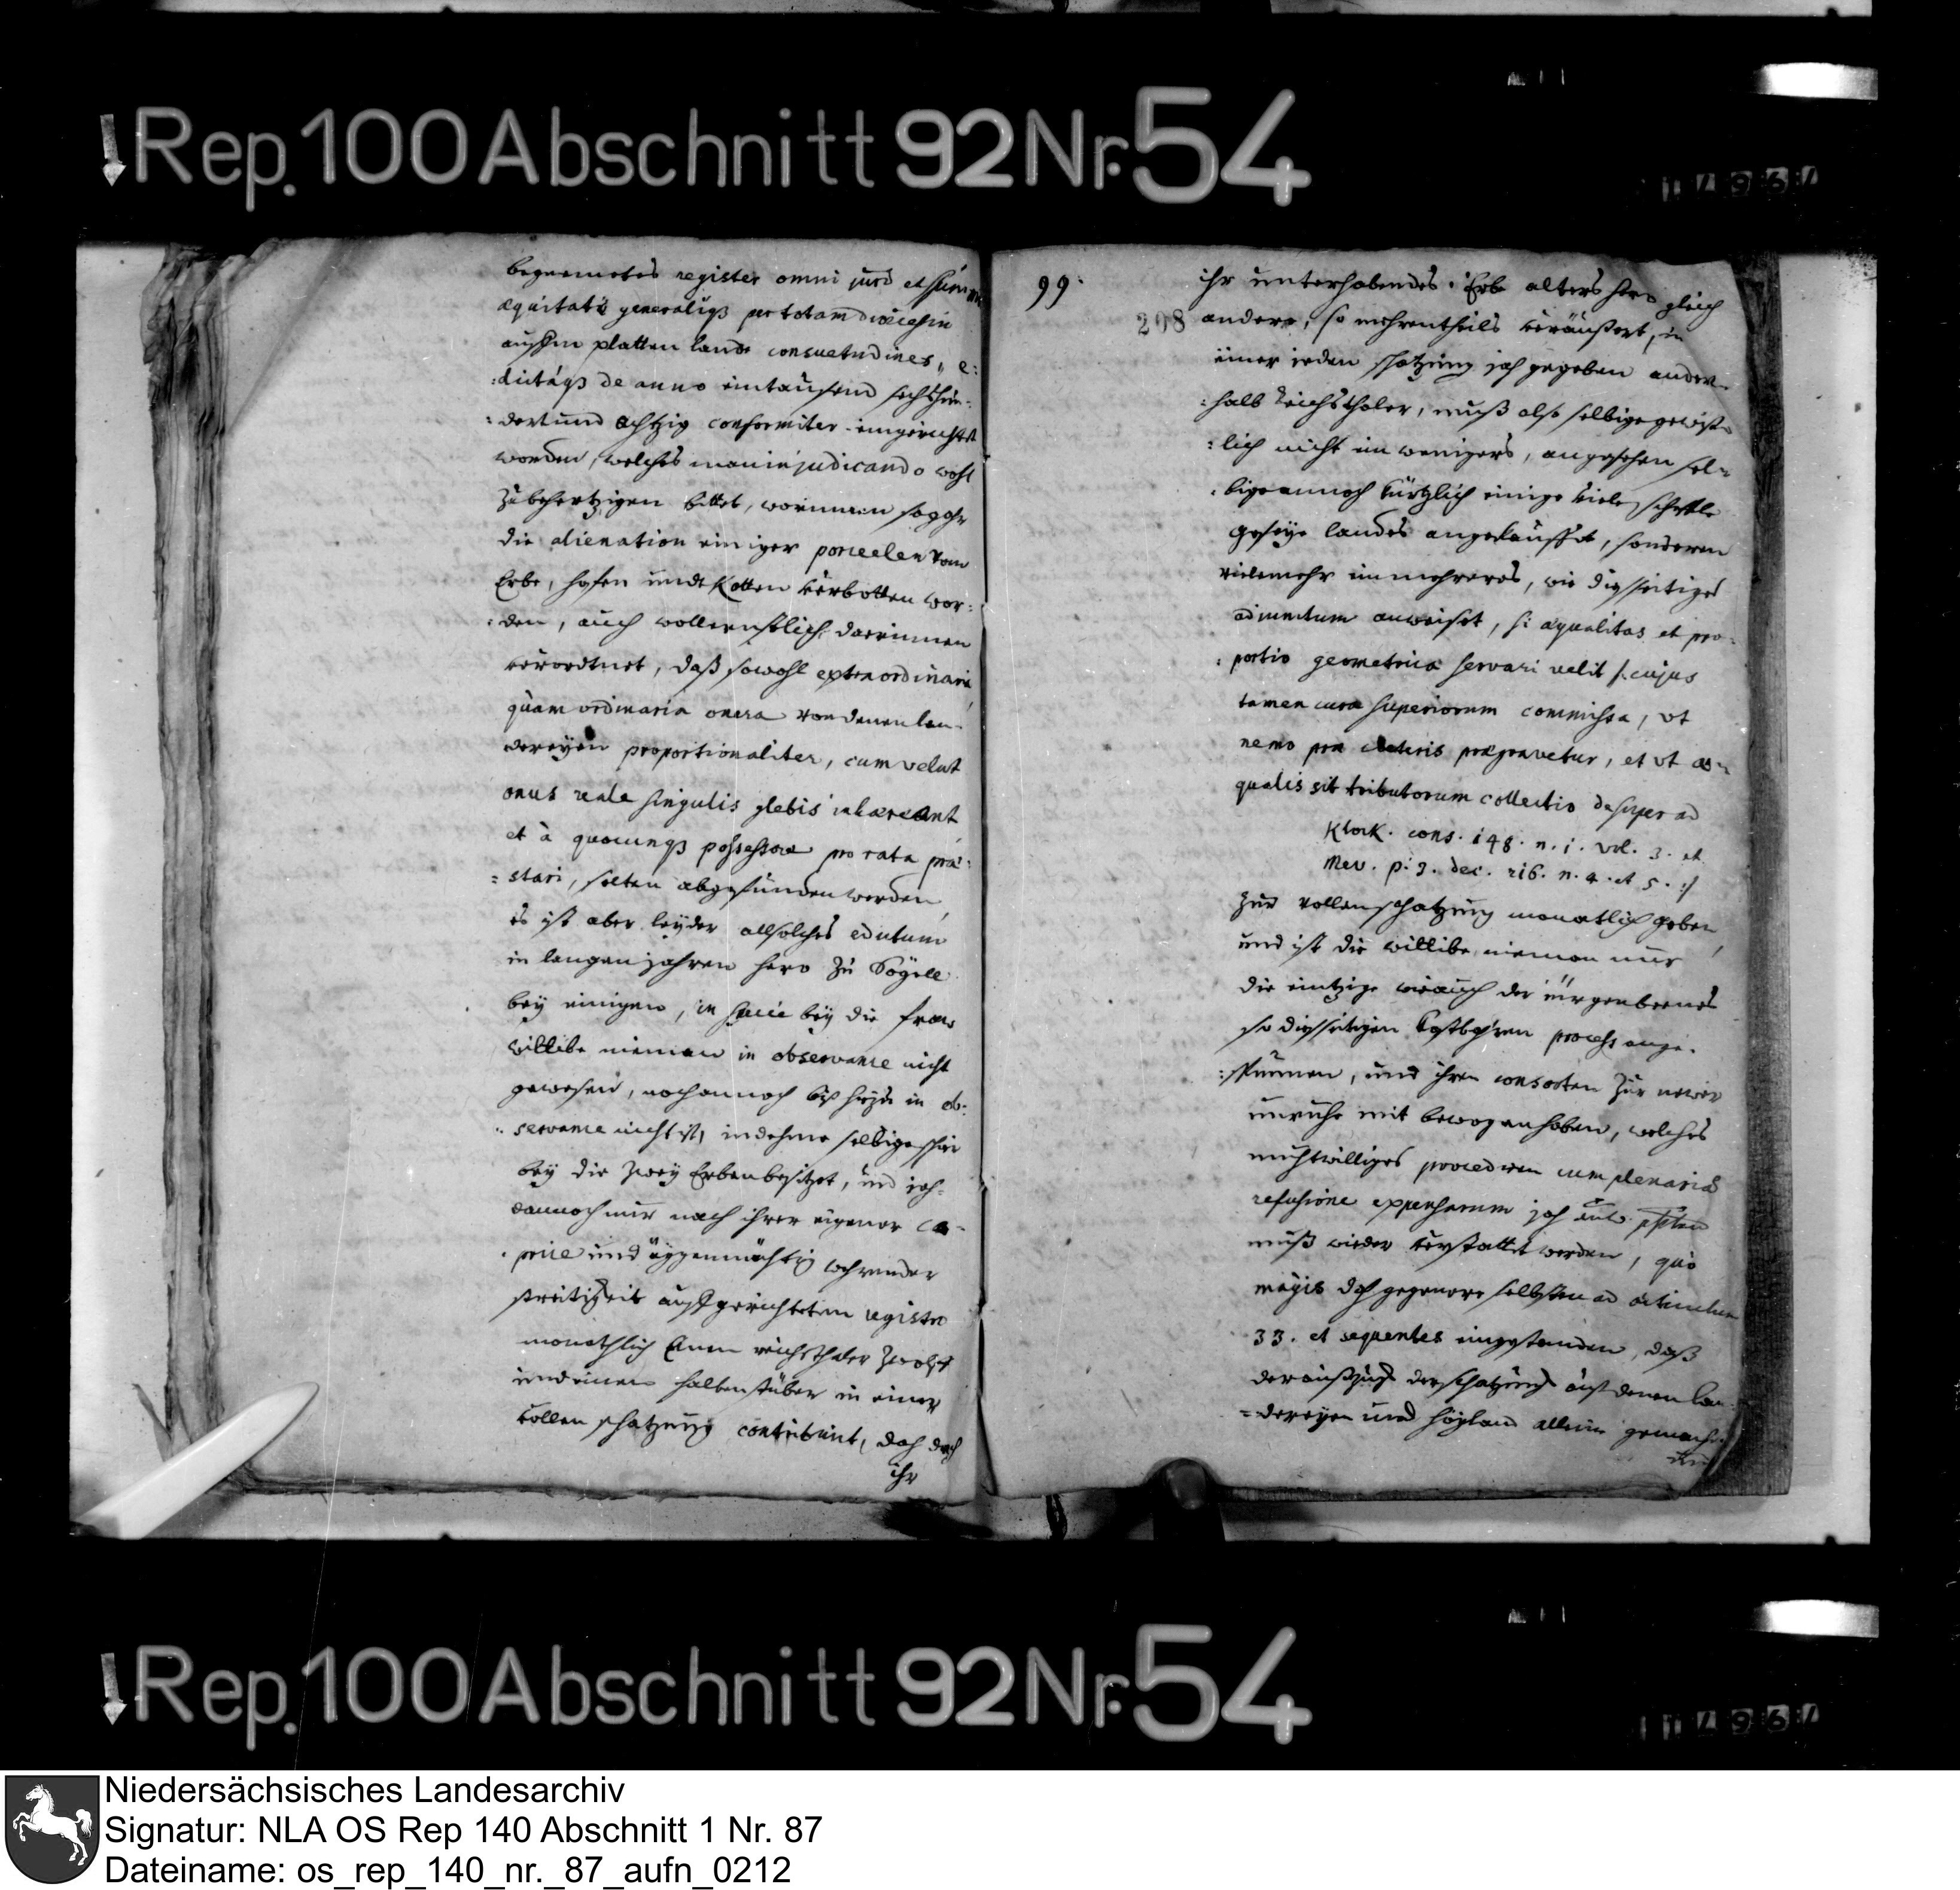 Rep. 100 Abschnitt 92 Nr. 54
register omni jure et summa
æquitati generalique per totam diœcesin
auffm platten lande consuetudines, e-
dictáq de anno eintausend sechshun-
dert und achtzig conformiter eingerichtet
worden, welches man in judicando wohl
zu behertzigen bittet, worinnen sogahr
die alienation einiger parceelen vom
Erbe, hofen undt Kotten verbotten wor-
den, auch wollernstlich darinnen
verordtnet, daß sowohl extraordinaria
quàm ordinaria onera von denen län-
dereyen proportionaliter, cum velut
onus reale singulis glebis inhæreant
et à quocunq possessore pro rata præ-
stari, solten abgefunden werden,
es ist aber leyder allsolches edictum
in langen jahren hero zu Sögell
bey einigen, in specie bey die fraw
Willibe nieman in observance nicht
gewesen, noch annoch biß heute in ob-
servance nicht ist, indehme selbige
bey die zwey Erben besitzet, und
dannoch nur nach ihrer eigener ca-
price und eygenmächtig wehrender
streitigkeit auffgerichteten registro
monathlich Einen reichsthaler zwolff
und einen halben stüber in einer
vollen schatzung contribuirt, da doch
ihr
99.
208
ihr unterhabendes Erbe alters hero gleich
andere, so mehrentheils veräußert, in
einer jeden schatzung gegeben ander-
halb reichsthaler, muß also selbige gewiß-
lich nicht ein wenigers, angesehen sel-
bige annoch kürtzlich einige viele scheffel
geseye landes angekaufft, sonderen
vielmehr ein mehreres, wie diesseitiges
adjunctum anweiset, si æqualitas et pro-
portio geometrica servari velit /: cujus
tamen cura superiorum commissa, ut
nemo præ cæteris prægravetur, et ut æ-
qualis sit tributorum collectio desuper ad
Klock. cons. 148. n. 1. vol. 3. et
Mev. p. 3. dec. 216. n. 4. et 5. :/
zur vollen schatzung monatlich geben,
und ist die Willibe nieman nur
die eintzige
so diesseitigen kostbahren process ange-
spunnen, und ihren consorten zur newer
unruhe mit bewogen haben, welches
muhtwilliges procediren cum plenaria
refusione expensarum
muß wieder erstattet werden, quo
magis da gegenere selbsten ad articulum
33. et sequentes eingestanden, daß
der außschlag der schatzung auß denen län-
dereyen und höyland allein gemacht
Rep. 100 Abschnitt 92 Nr. 54
Niedersächsisches Landesarchiv
Signatur: NLA OS Rep 140 Abschnitt 1 Nr. 87
Dateiname: os_rep_140_nr._87_aufn_0212